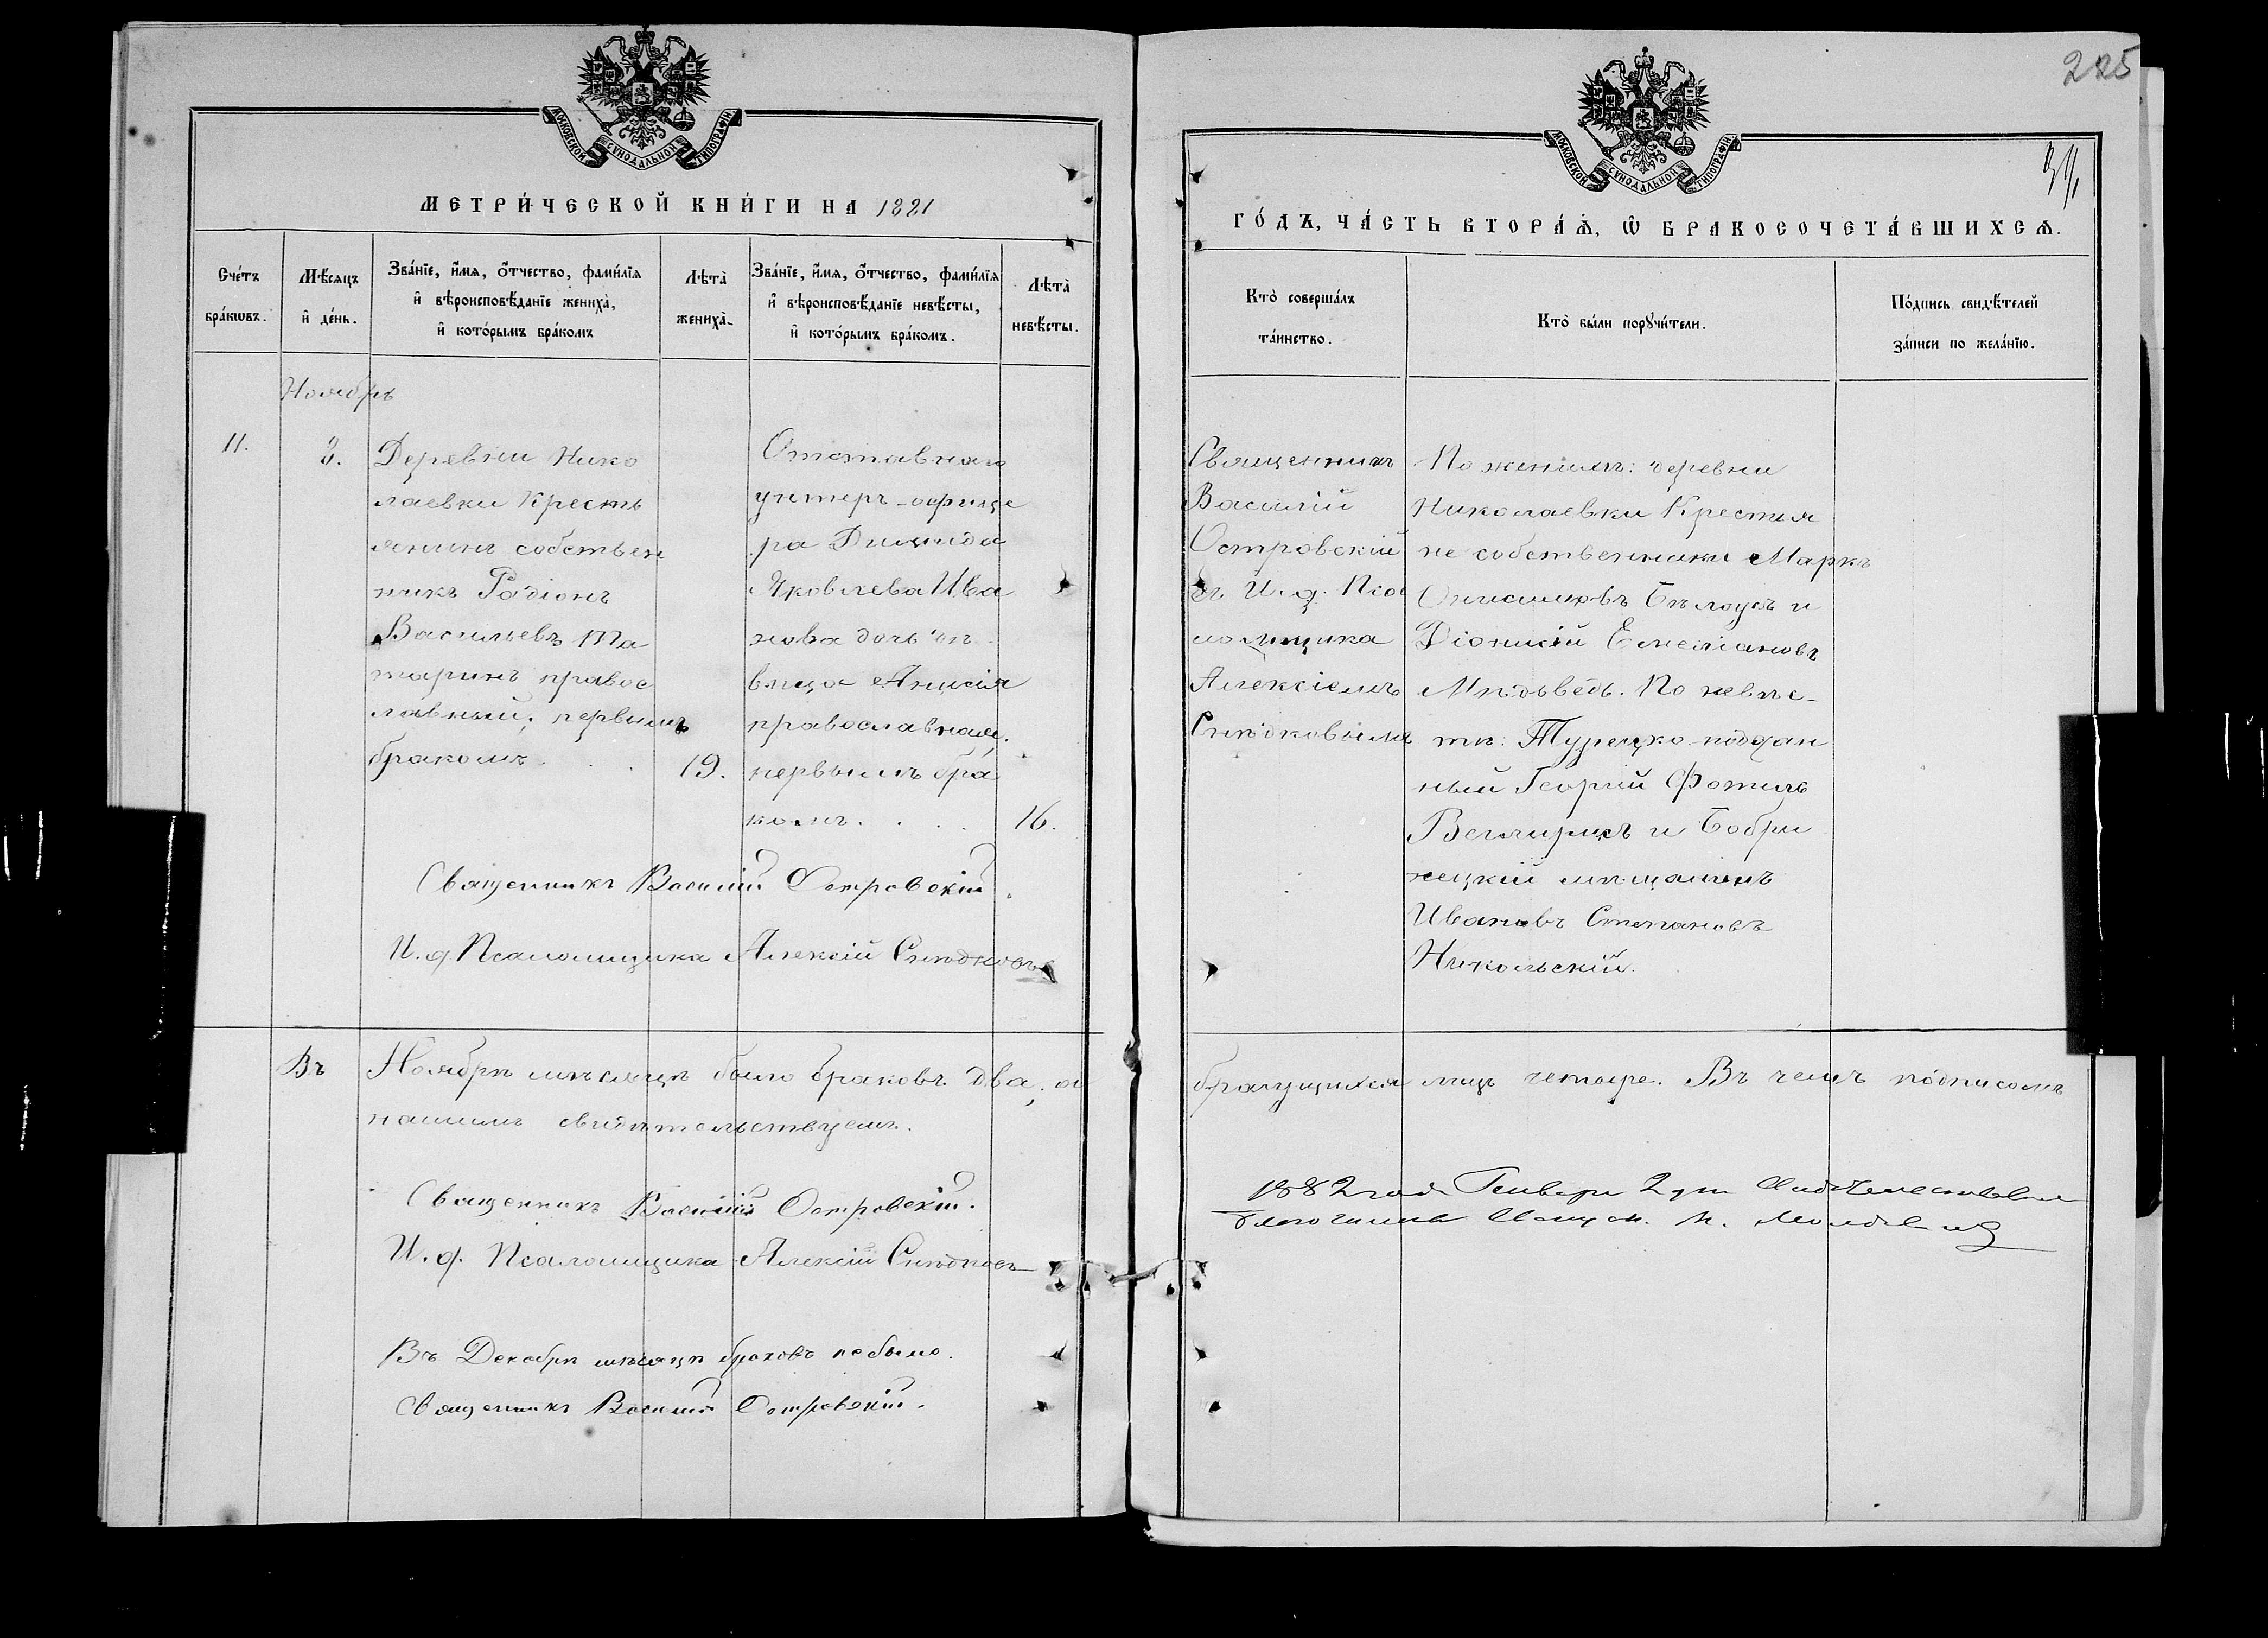 225
МОСКОВСКОЙ СѴНОДАЛЬНОЙ ТИПОГРАФІИ.
МЕТРИ́ЧЕСКОЙ КНИ́ГИ НА 1881
Сче́тъ бра́кωвъ.
Мѣ́сяцъ и҆ де́нь.
Зва́нїе, и҆́мѧ, ѻ҆́тчество, фами́лїѧ
и҆ вѣроисповѣ́данїе жениха̀,
и҆ кото́рымъ бра́комъ
Лѣта̀ жениха̀.
Зва́нїе, и҆́мѧ, ѻ҆́тчество, фами́лїѧ
и҆ вѣроисповѣ́данїе невѣ́сты,
и҆ кото́рымъ бра́комъ.
Лѣта̀ невѣ́сты.
Ноябрь
11.
Деревни Нико
лаевки Кресть
янинъ собствен
никъ Радіонъ
Васильевъ Та
таринъ правос
лавный, первымъ
бракомъ. . .
19.
Отставнаго
унтеръ-офице
ра Димида
Яковлева Ива
нова дочь дѣ
вица Анисія
православная,
первымъ бра
комъ. . . .
16.
Священникъ Василій Островскій.
И. д. Псаломщика Алексій
Въ Ноябрѣ мѣсяцѣ было браковъ два, а
нашимъ свидѣтельствуемъ.
Священникъ Василій Островскій.
И. д. Псаломщика Алексій
Въ Декабрѣ мѣсяцѣ браковъ не было.
Священникъ Василій Островскій.
МОСКОВСКОЙ СѴНОДАЛЬНОЙ ТИПОГРАФІИ.
ГО́ДЪ, ЧА́СТЬ ВТОРА́Ѧ, Ѡ҆ БРАКОСОЧЕТА́ВШИХСѦ.
Кто̀ соверша́лъ
та́инство.
Кто̀ бы́ли порꙋчи́тели.
По́дпись свидѣ́телей
за́писи по жела́нїю.
Священникъ
Василій
Островскій
съ И. д. Пса
ломщика
Алексіемъ
По женихѣ: деревни
Николаевки Крестья
не собственники Маркъ
Онисимовъ Бѣлоусъ и
Діонисій Емеліановъ
Мѣдьведь. По невѣс-
тѣ: Турецко-поддан
ный Георгій Фотилъ
и Бобри
нецкій мѣщанинъ
Ивановъ Степановъ
Никольскій.
брачущихся лицъ четыре. Въ чемъ подписомъ
1882 года Генваря 2 дня